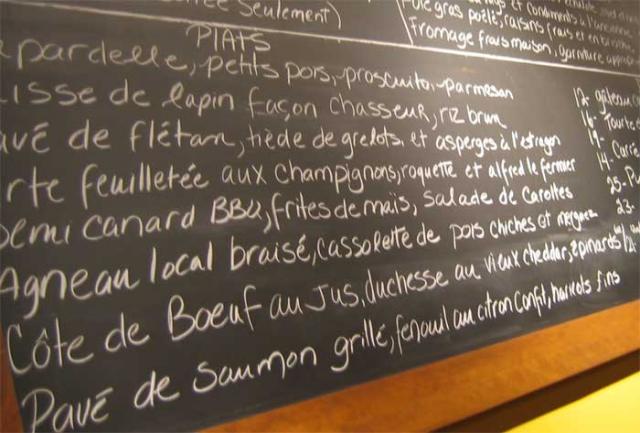 Seulement)
Foie gras poêlé, raisins frais et en
Fromage frais maison, garniture
PLATS
pardelle, petits pois, prosciuto, parmesan
isse de lapin façon chasseur, riz brun
avé de flétan, tiède de grelots et asperges à l'estragon
rte feuilletée aux champignons, roquette et alfred le fermier
Demi canard BBQ, frites de mais, salade de carottes
Agneau local braisé, cassolette de pois chiches et merguez
Côte de Boeuf au jus, duchesse au vieux cheddar, épinards
Pavé de saumon grillé, fenouil au citron confit, haricots fins
12-
16- Tourte
19- Carré
14-
25-
23-